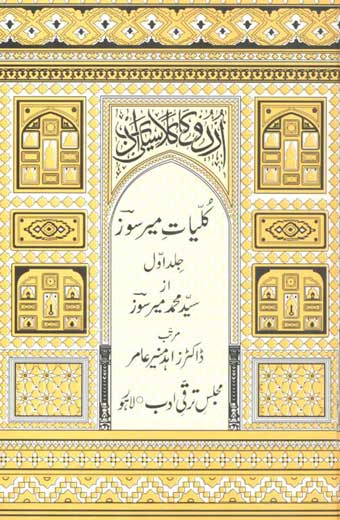 اُردو کا کلاسیکی ادب
کلیاتِ میر سوزؔ
جلد اوّل
از
سیّد محمد میر سوزؔ
مرتب
ڈاکٹر زاہد منیر عامر
مجلس ترقی ادب ○ لاہور